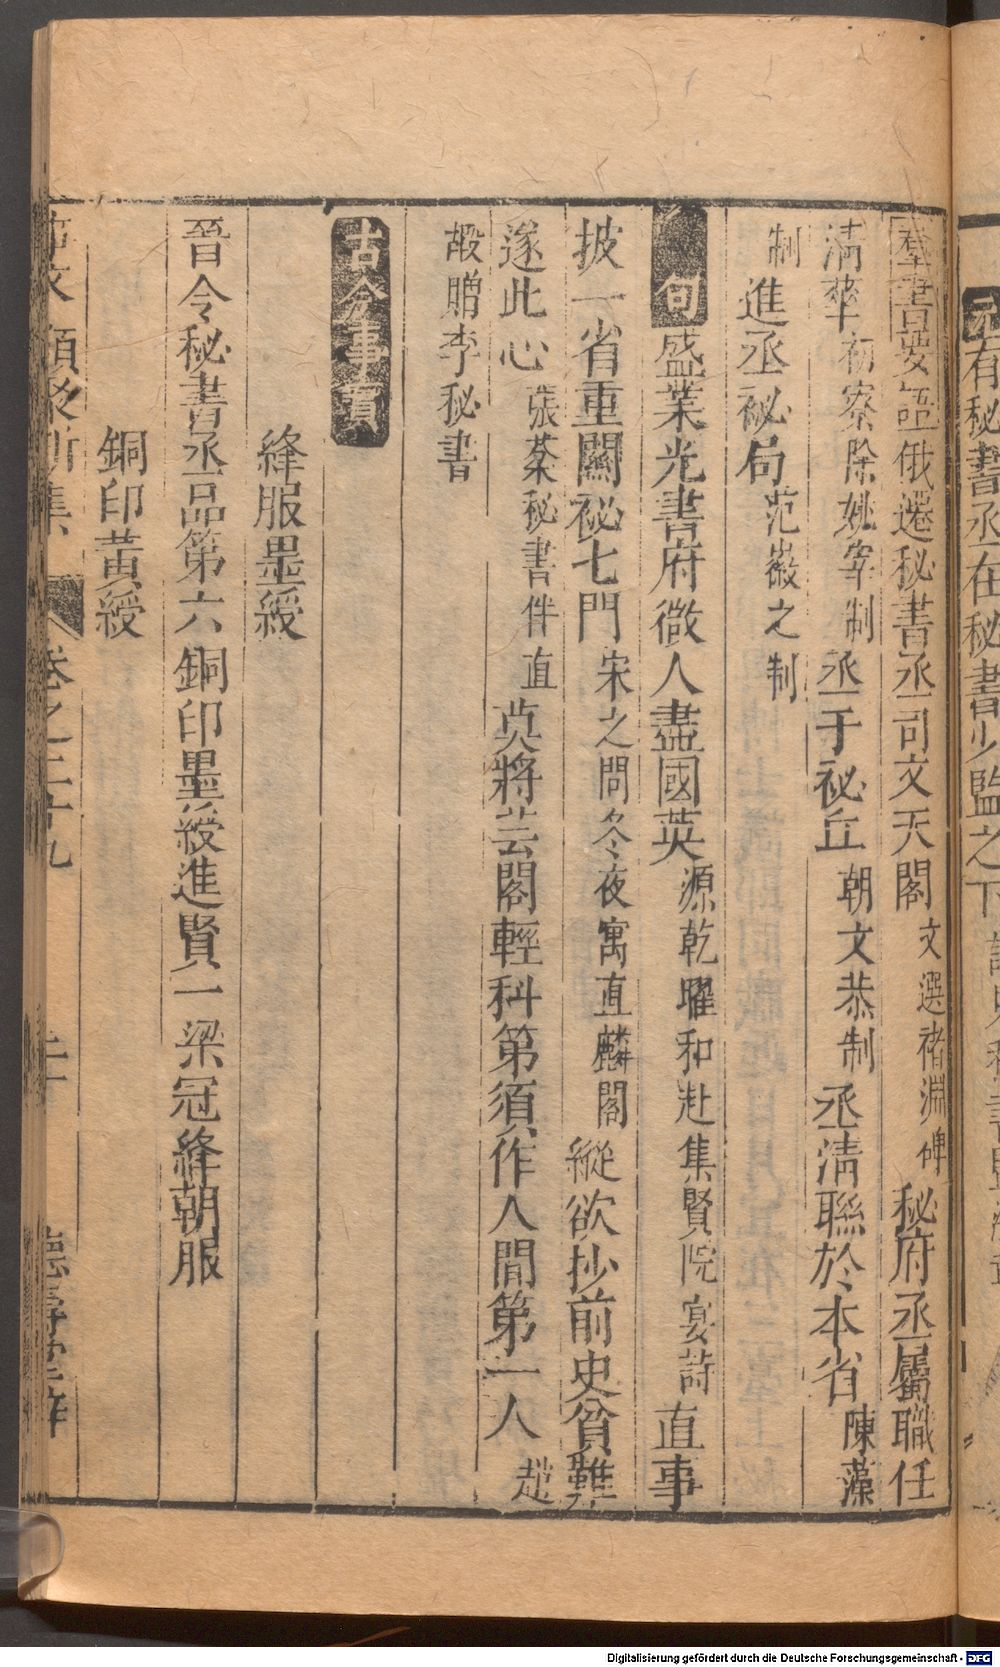 羣書要語俄遷秘書丞司文天閣文選褚淵碑秘府丞屬職任
清華初寮除姚宰制丞于祕丘朝文恭制丞清聯於本省陳藻
制進丞祕局范嶶之制
句盛業光書府徵人盡國英源乾曜和赴集賢院宴詩直事
披一省重闗祕七門宋之問冬夜寓直麟閣縱欲抄前史貧難
遂此心張蒸秘書伴直莫將芸閣輕科第須作人間第一人趙
嘏贈李秘書
古今事實
絳服墨綬
晉令秘書丞品第六銅印墨綬進賢一梁冠絳朝服
銅印黄綬
事文類聚新集 卷之二十九 二十 德壽堂梓
有秘書丞在秘書少監之下
Digitalisierung gefördert durch die Deutsche Forschungsgemeinschaft - DFG